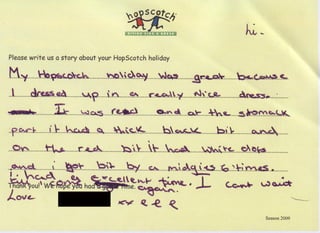 hopscotch
GIVING KIDS A BREAK
hi.
Please write us a story about your HopScotch holiday
My Hopscotch holiday was great because
I dressed up in a really nice dress.
It was red and at the stomack
part it had a thick black bit and
on the red bit it had white dots
and i got bit by a midgies 6 times.
I had a excellent time. I cant wait
Thank you! We hope you had a time.
again.
Love
xx
Season 2009